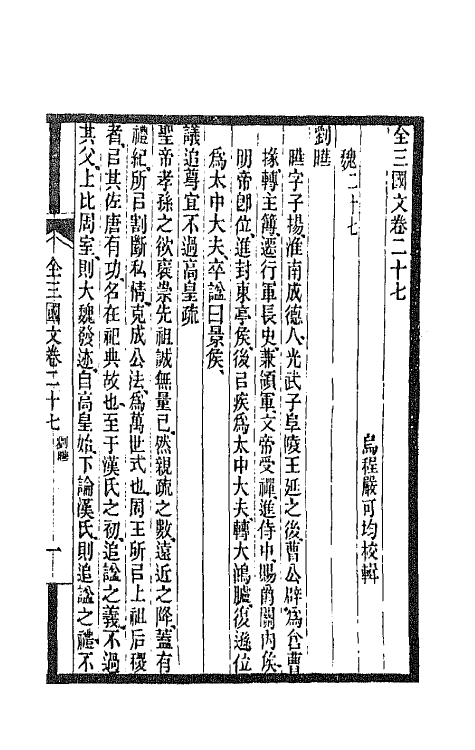 全三國文卷二十七
烏程嚴可均校輯
魏二十七
劉曄
曄字子揚淮南成德人光武子阜陵王延之後曹公辟爲仓曹
掾轉主簿遷行軍長史兼領軍文帝受禪進侍中賜爵關內矦
明帝卽位進封東亭矦後㠯疾爲太中大夫轉大鴻臚復遜位
爲太中大夫卒謚曰景矦
議追尊宜不過高皇疏
聖帝孝孫之欲襃崇先祖誠無量已然親疏之數遠近之降蓋有
禮紀所㠯割斷私情克成公法爲萬世式也周王所㠯上祖后稷
者㠯其佐唐有功名在祀典故也至于漢氏之初追謚之義不過
其父上比周室則大魏發迹自高皇始下論漢氏則追謚之禮不
全三國文卷二十七 劉曄 一